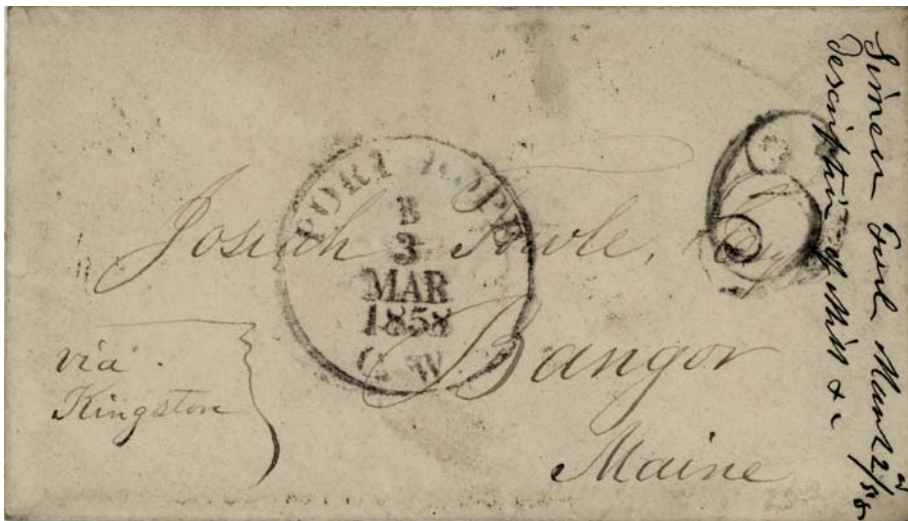 PORT HOPE
B
3
MAR
1858
C.W
6
Josiah Towle, Esq
Bangor
Maine
via
Kingston
Simeon March 2/58
Description of Mill & c